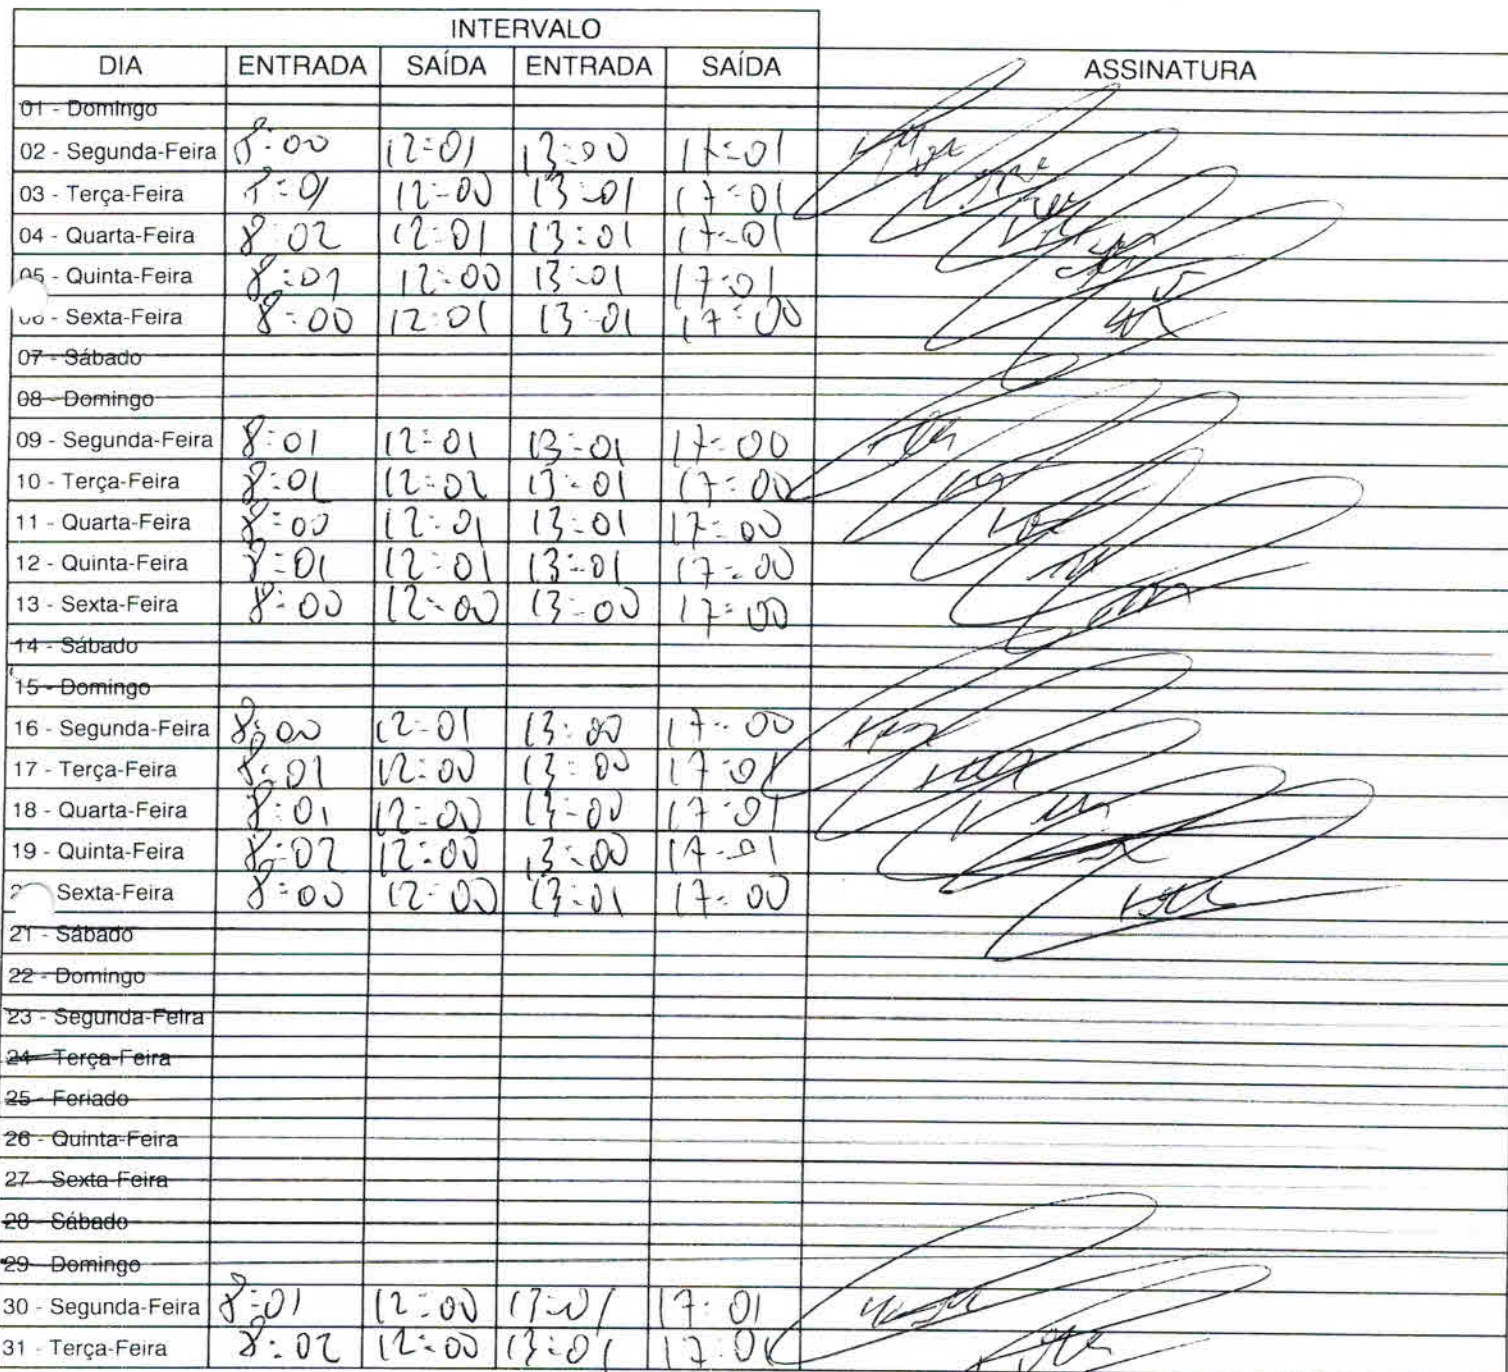 INTERVALO
DIA ENTRADA SAÍDA ENTRADA SAÍDA ASSINATURA
01 - Domingo
02 - Segunda-Feira 8:00 12:01 13:00 17:01
03 - Terça-Feira 8:01 12:00 13:01 17:01
04 - Quarta-Feira 8:02 12:01 13:01 17:01
05 - Quinta-Feira 8:01 12:00 13:01 17:01
06 - Sexta-Feira 8:00 12:01 13:01 17:00
07 - Sábado
08 - Domingo
09 - Segunda-Feira 8:01 12:01 13:01 17:00
10 - Terça-Feira 8:01 12:02 13:01 17:00
11 - Quarta-Feira 8:00 12:01 13:01 17:00
12 - Quinta-Feira 8:01 12:01 13:01 17:00
13 - Sexta-Feira 8:00 12:00 13:00 17:00
14 - Sábado
15 - Domingo
16 - Segunda-Feira 8:00 12:01 13:00 17:00
17 - Terça-Feira 8:01 12:00 13:00 17:01
18 - Quarta-Feira 8:01 12:00 13:00 17:01
19 - Quinta-Feira 8:02 12:00 13:00 17:01
2 Sexta-Feira 8:00 12:00 13:01 17:00
21 - Sábado
22 - Domingo
23 - Segunda-Feira
24 - Terça-Feira
25 - Feriado
26 - Quinta-Feira
27 - Sexta-Feira
28 - Sábado
29 - Domingo
30 - Segunda-Feira 8:01 12:00 13:01 17:01
31 - Terça-Feira 8:02 12:00 13:01 17:01